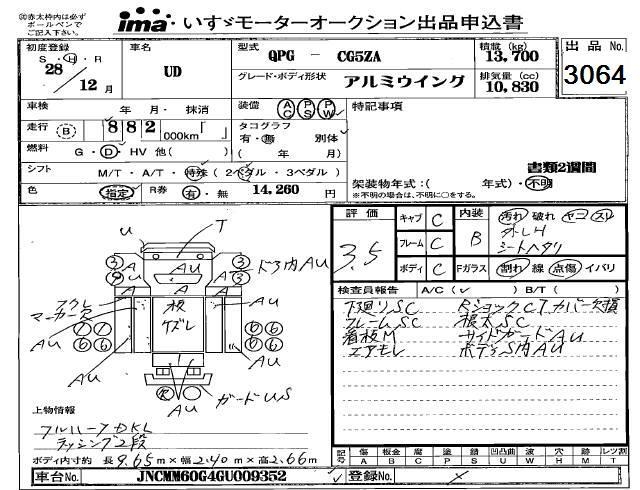 ㊟赤太枠内は必ず
ボールペンで
ご記入下さい。
ima いすゞモーターオークション出品申込書
初度登録 S・H・R 28年 12月
車名 UD
型式 QPG - CG5ZA
積載 (kg) 13,700
出品 No. 3064
グレード・ボディ形状 アルミウイング
排気量 (cc) 10,830
車検 年 月・抹消
装備 AC PS PW
特記事項
走行 B 882 000km「 」
タコグラフ 有・無 別体
( 年 月)
燃料 G・D・HV 他( )
書類2週間
シフト M/T・A/T・特殊(2ペダル・3ペダル)
架装物年式:( 年式)・不明
※不明の場合は、不明に○をする。
色 指定 R券 有・無 14,260 円
評価 3.5
キャブ C
フレーム C
ボディ C
内装 B
汚れ 破れ ヤコ スリ
外レH
シートヘタリ
Fガラス 割れ 線 点傷 イバリ
検査員報告 A/C( ✓ ) B/T( )
下廻りSC RショックCTカバー欠損
フレームSC 根太SC
看板M サイドガードAU
エアモレ ボディS内AU
U T
ドア内AU
A AU A
3 3
A A A
板
ケズレ
マーカー欠
AU AU
6 6
R
AU ガードUS
上物情報
フルハーフDKL
ラッシング2段
ボディ内寸約 長9.65m×幅2.40m×高2.66m
記号 傷A 板金B 腐C 塗P 錆S 凹凸曲U 波W 穴H 跡M レツ割T
車台No. JNCMM60G4GU009352
登録No.